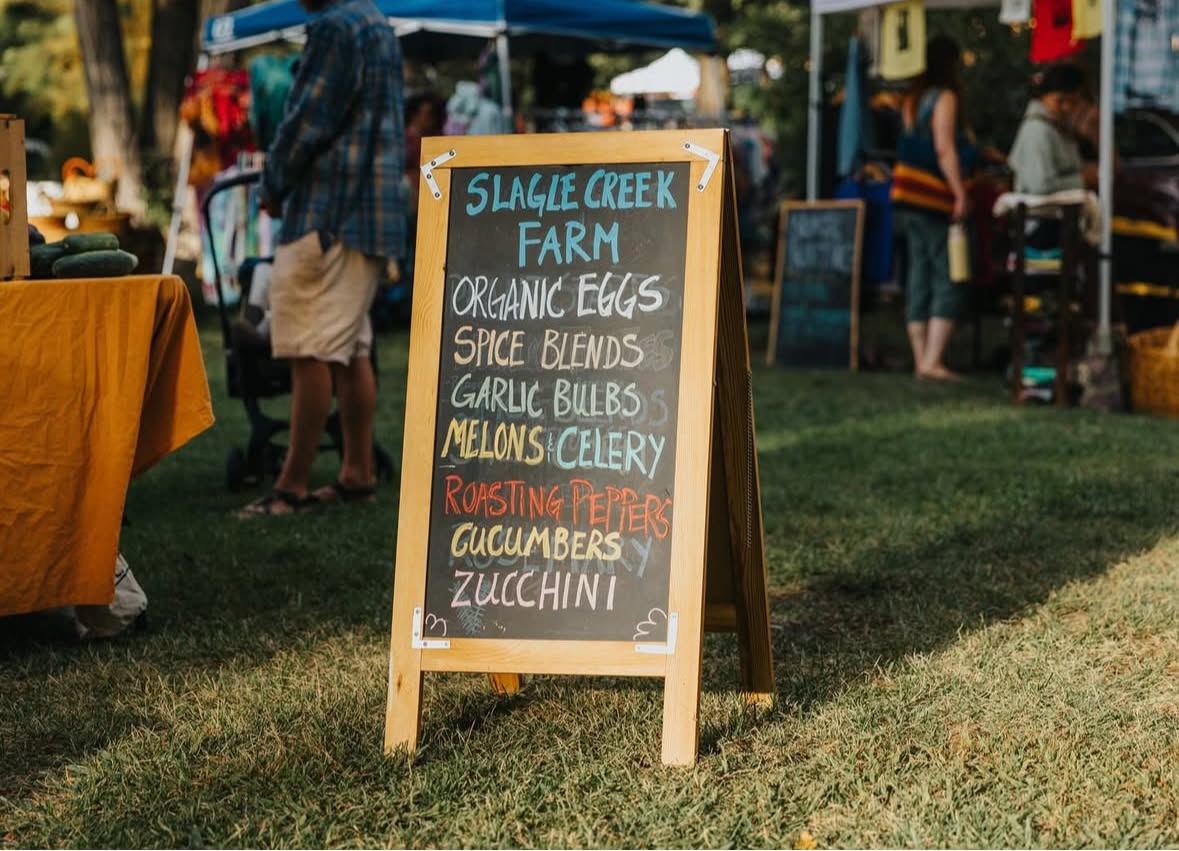 SLAGLE CREEK
FARM
ORGANIC EGGS
SPICE BLENDS
GARLIC BULBS
MELONS & CELERY
ROASTING PEPPERS
CUCUMBERS
ZUCCHINI